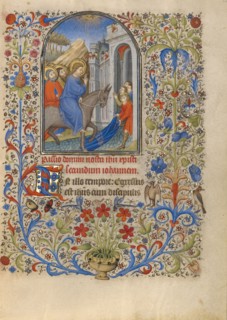 Passio domini nostri ihu xpisti
secundum iohannem.
In illo tempore: Egressus
est ihus cum discipulis